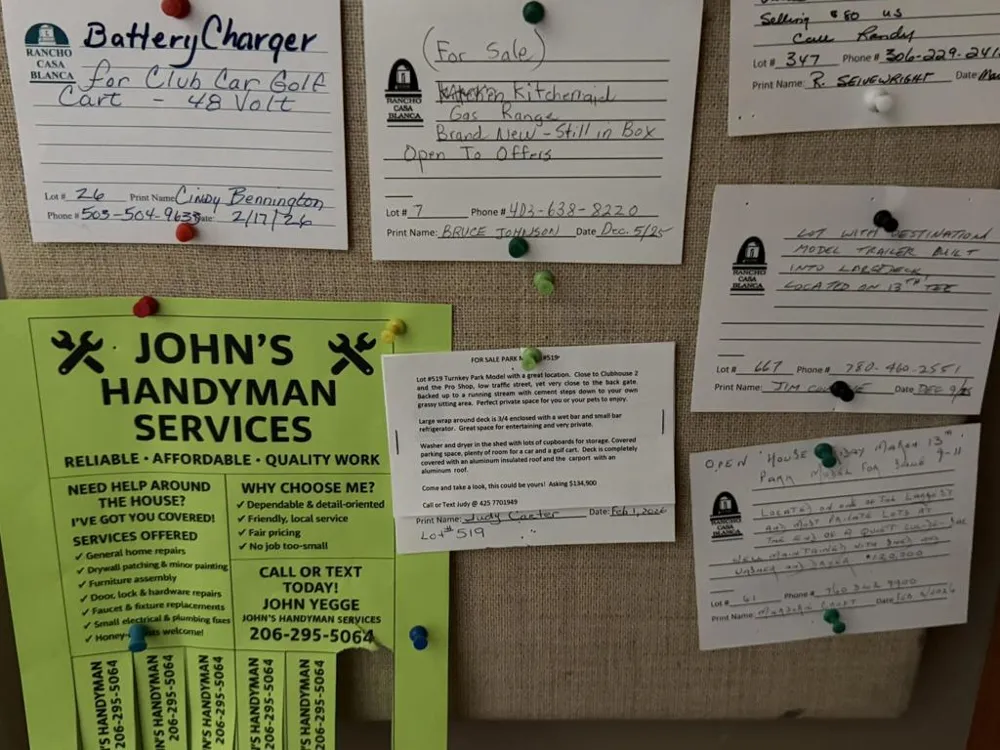 RANCHO
CASA
BLANCA
Battery Charger
for Club Car Golf
Cart - 48 Volt
Lot # 26 Print Name: Cindy Bennington
Phone # 503-504-9633 Date: 2/17/26
(For Sale)
RANCHO
CASA
BLANCA
Kitchenaid
Gas Range
Brand New - Still in Box
Open To Offers
Lot # 7 Phone # 403-638-8220
Print Name: BRUCE JOHNSON Date Dec. 5/25
Selling $80 US
Call Randy
Lot # 347 Phone # 306-229-241
Print Name: R. SEIVEWRIGHT Date:
LOT WITH DESTINATION
MODEL TRAILER BUILT
INTO LARGE DECK,
LOCATED ON 13TH TEE
RANCHO
CASA
BLANCA
Lot # 667 780-460-2551
Print Name: JIM Date DEC 9/25
JOHN'S
HANDYMAN
SERVICES
RELIABLE • AFFORDABLE • QUALITY WORK
NEED HELP AROUND
THE HOUSE?
I'VE GOT YOU COVERED!
SERVICES OFFERED
✓ General home repairs
✓ Drywall patching & minor painting
✓ Furniture assembly
✓ Door, lock & hardware repairs
✓ Faucet & fixture replacements
✓ Small electrical & plumbing fixes
✓ Honey- welcome!
WHY CHOOSE ME?
✓ Dependable & detail-oriented
✓ Friendly, local service
✓ Fair pricing
✓ No job too-small
CALL OR TEXT
TODAY!
JOHN YEGGE
JOHN'S HANDYMAN SERVICES
206-295-5064
N'S HANDYMAN
206-295-5064
N'S HANDYMAN
206-295-5064
N'S HANDYMAN
206-295-5064
N'S HANDYMAN
206-295-5064
N'S HANDYMAN
206-295-5064
FOR SALE PARK #519
Lot #519 Turnkey Park Model with a great location. Close to Clubhouse 2
and the Pro Shop, low traffic street, yet very close to the back gate.
Backed up to a running stream with cement steps down to your own
grassy sitting area. Perfect private space for you or your pets to enjoy.
Large wrap around deck is 3/4 enclosed with a wet bar and small bar
refrigerator. Great space for entertaining and very private.
Washer and dryer in the shed with lots of cupboards for storage. Covered
parking space, plenty of room for a car and a golf cart. Deck is completely
covered with an aluminum insulated roof and the carport with an
aluminum roof.
Come and take a look, this could be yours! Asking $134,900
Call or Text Judy @ 425 7701949
Print Name: Judy Carter Date: Feb 1, 2026
Lot # 519
OPEN HOUSE MARCH 13TH
PARK MODEL FOR SALE 9-11
RANCHO
CASA
BLANCA
LOCATED ON ONE OF THE LARGEST
AND MOST PRIVATE LOTS AT
THE END OF A QUIET
WELL MAINTAINED WITH SHED AND
WASHER AND DRYER $120,000
Lot # 61 Phone # 760
Print Name: Date